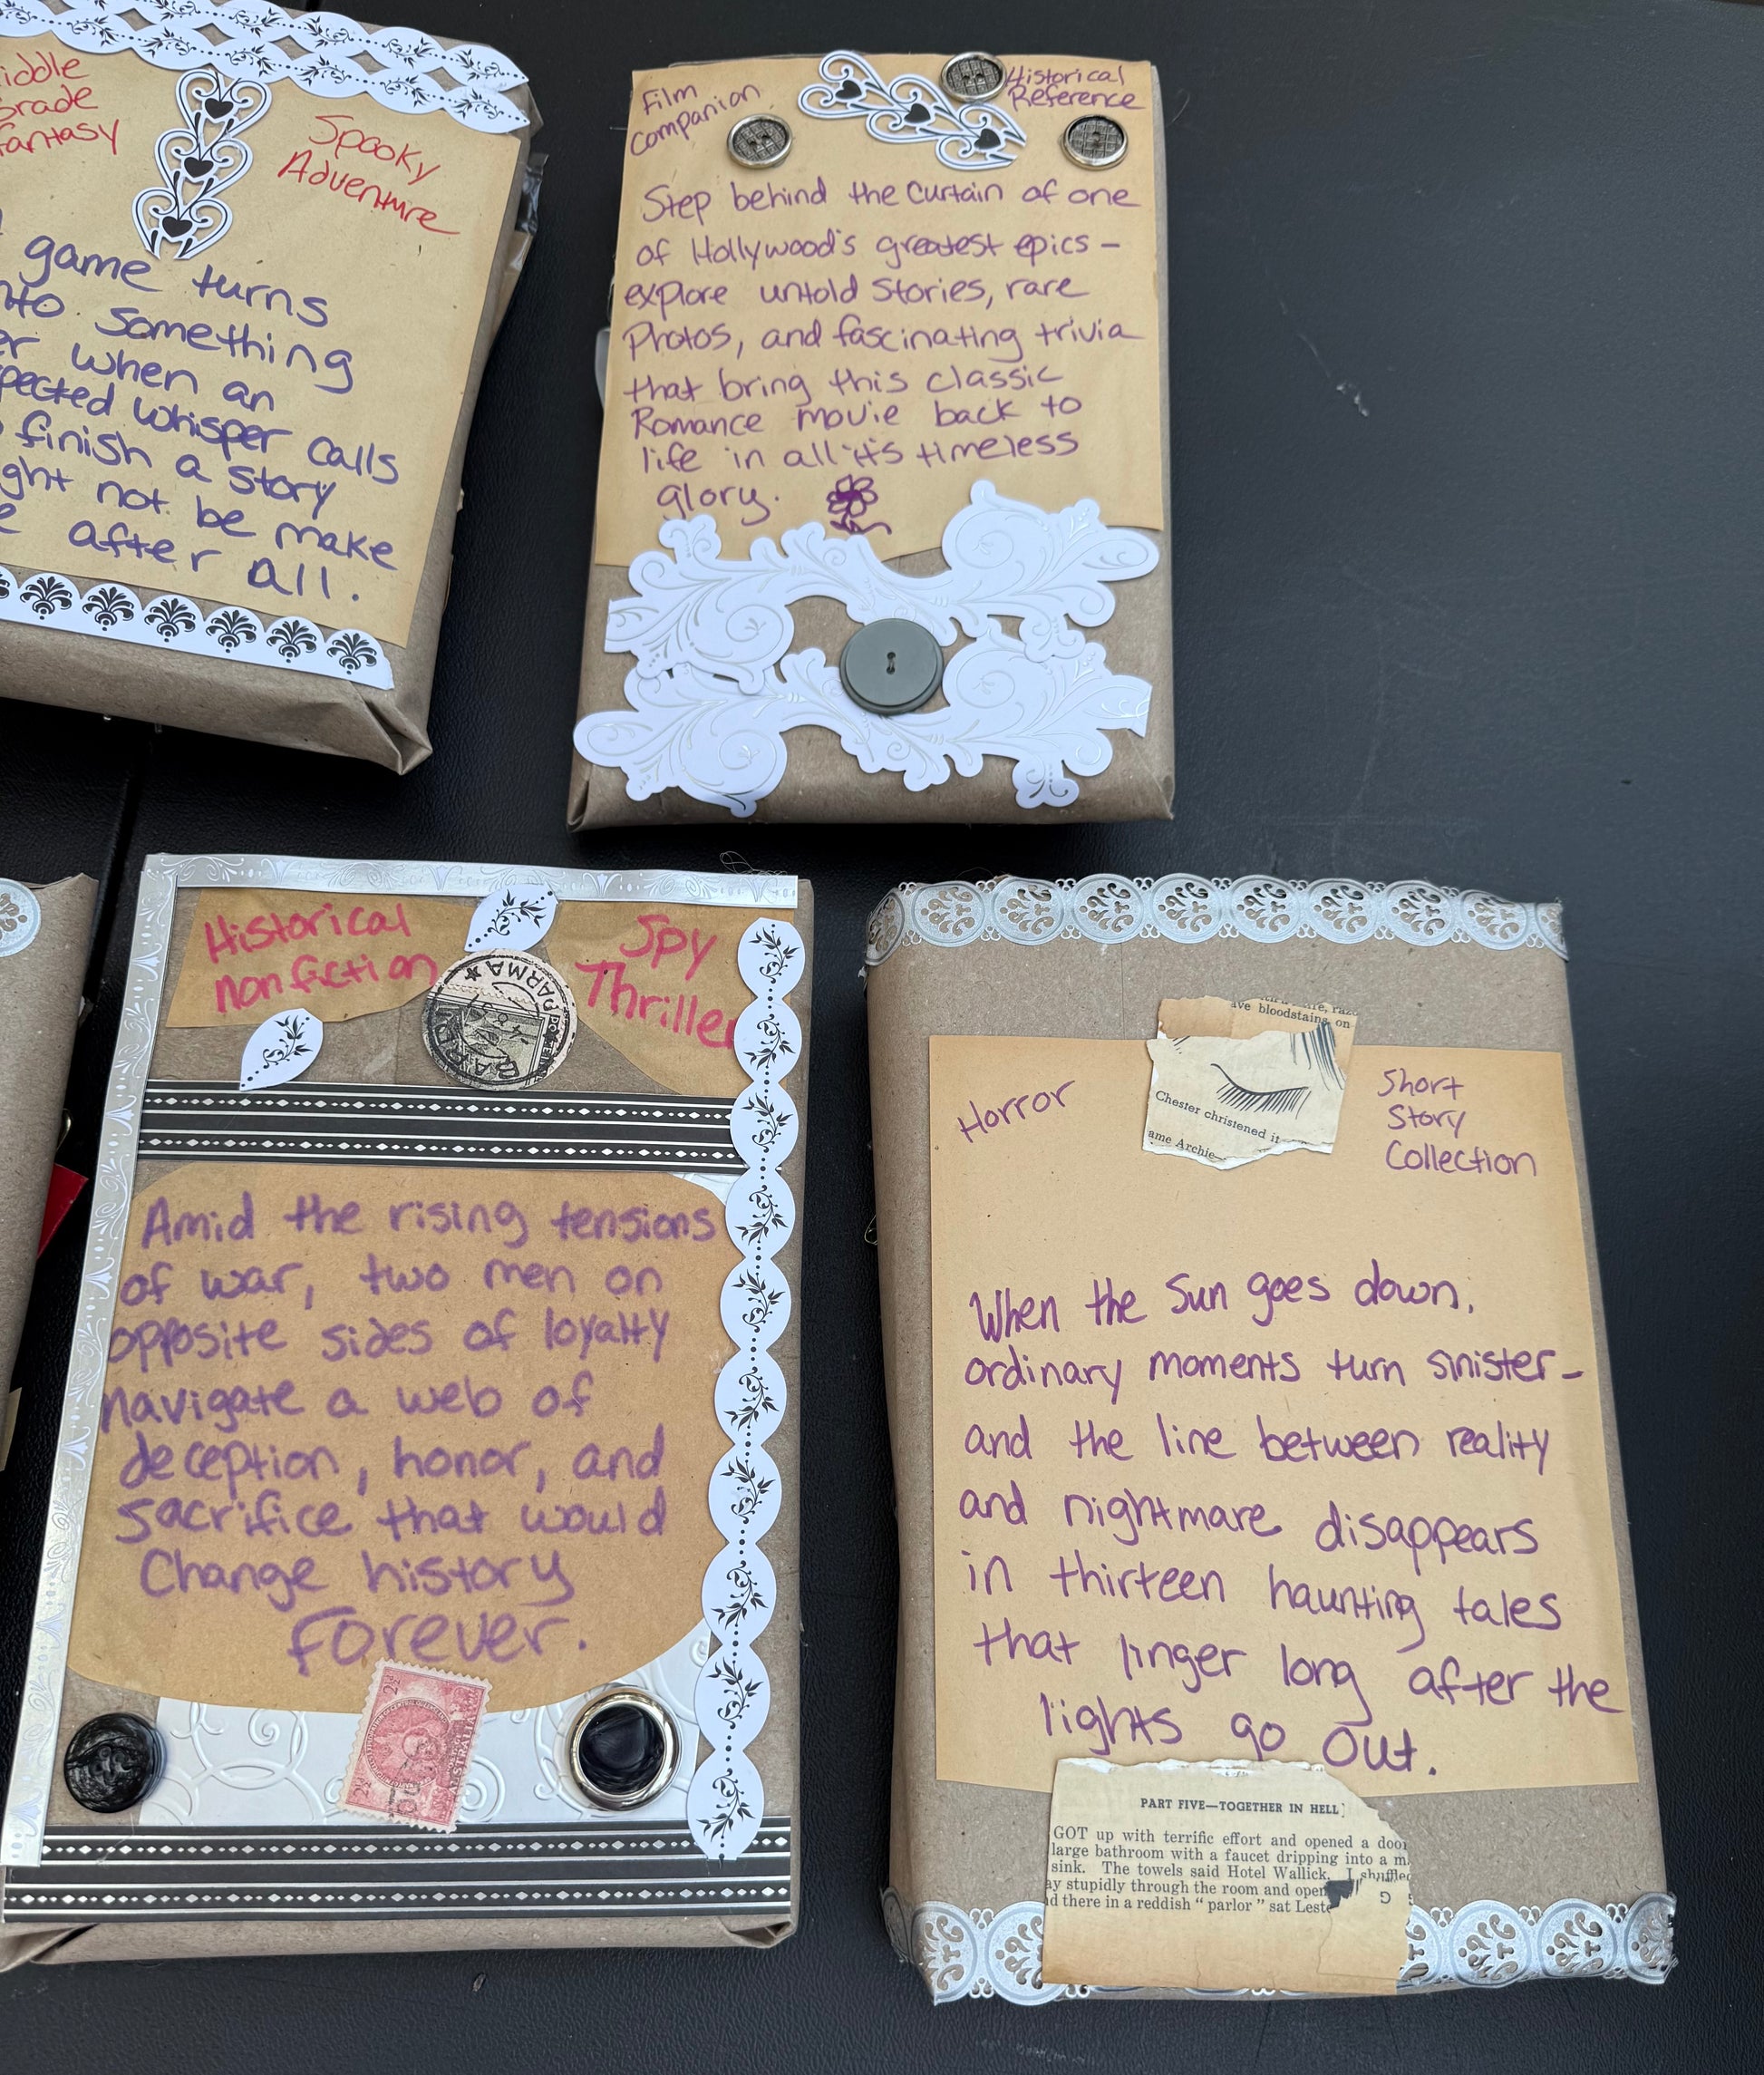 Grade
Fantasy
Spooky
Adventure
game turns
something
when an
whisper calls
finish a story
not be make
after all.
Film
Companion
Historical
Reference
Step behind the Curtain of one
of Hollywood's greatest epics –
explore untold Stories, rare
Photos, and fascinating trivia
that bring this classic
Romance movie back to
life in all it's timeless
glory.
Historical
nonfiction
Spy
Thriller
PARMA
Amid the rising tensions
of war, two men on
opposite sides of loyalty
navigate a web of
deception, honor, and
sacrifice that would
Change history
Forever.
2½
2½
bloodstains on
Chester christened it
Archie—
Horror
Short
Story
Collection
When the Sun goes down,
ordinary moments turn sinister –
and the line between reality
and nightmare disappears
in thirteen haunting tales
that linger long after the
lights go out.
PART FIVE—TOGETHER IN HELL
GOT up with terrific effort and opened a door
large bathroom with a faucet dripping into a
sink. The towels said Hotel Wallick. I shuffled
stupidly through the room and
there in a reddish "parlor" sat